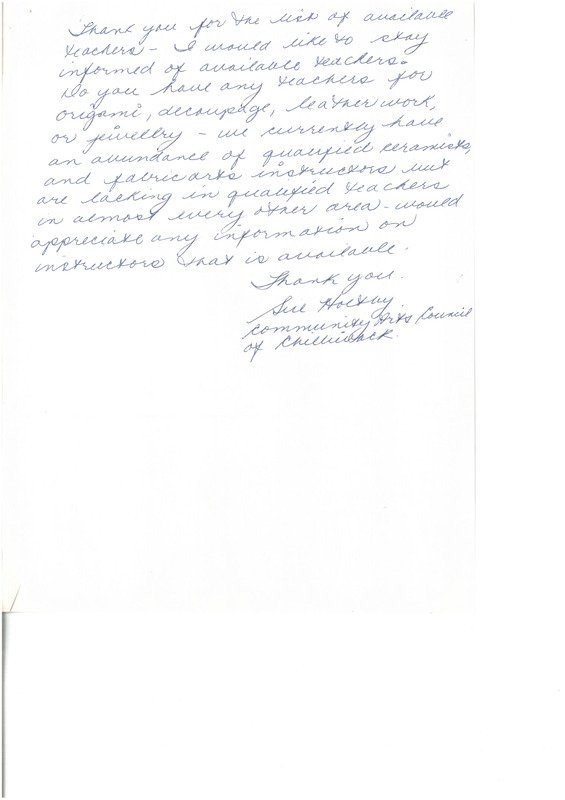 Thank you for the list of available
teachers - I would like to stay
informed of available teachers.
Do you have any teachers for
origami, decoupage, leather work,
or jewellry - we currently have
an abundance of qualified ceramists,
and fabric arts instructors but
are lacking in qualified teachers
in almost every other area - would
appreciate any information on
instructors that is available.
Thank you.
Sue
Community Arts Council
of Chilliwack.